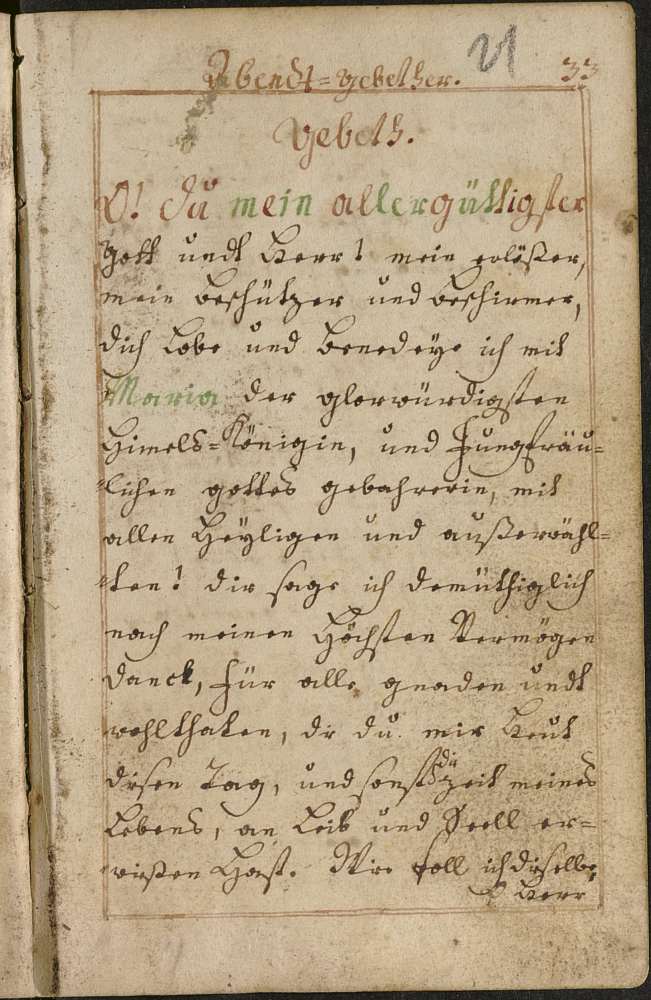 Abendt=gebether. 21 33
Gebeth.
O! du mein allergüttigster
gott undt Herr! mein erlößer,
mein beschützer und beschirmer,
dich lobe und benedeye ich mit
Maria der glorwürdigsten
Himels=Königin, und Jungfräu=
lichen gottes gebahrerin, mit
allen Heyligen und außerwähl=
ten! dir sage ich demüthiglich
nach meinen Höchsten Vermögen
danck, für alle gnaden undt
wohlthaten, die du mir Heut
disen Tag, und sonst die zeit meines
Lebens, an Leib und Seell er=
wißen Hast. Wie soll ich dirselbe
O Herr